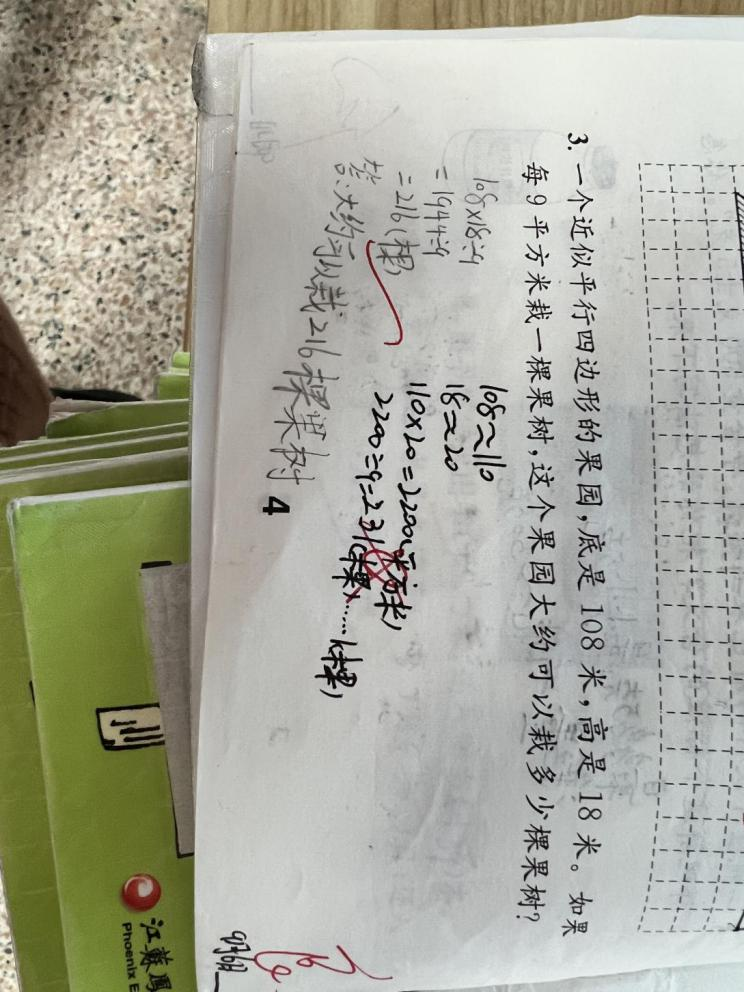 3. 一个近似平行四边形的果园，底是 108 米，高是 18 米。如果
每 9 平方米栽一棵果树，这个果园大约可以栽多少棵果树？
108×18÷9
=1944÷9
=216(棵)
答:大约可以栽216棵果树
108≈110
18≈20
110×20=2200(平方米)
2200÷9=231(棵)……1(棵)
4
江苏凤
Phoenix E